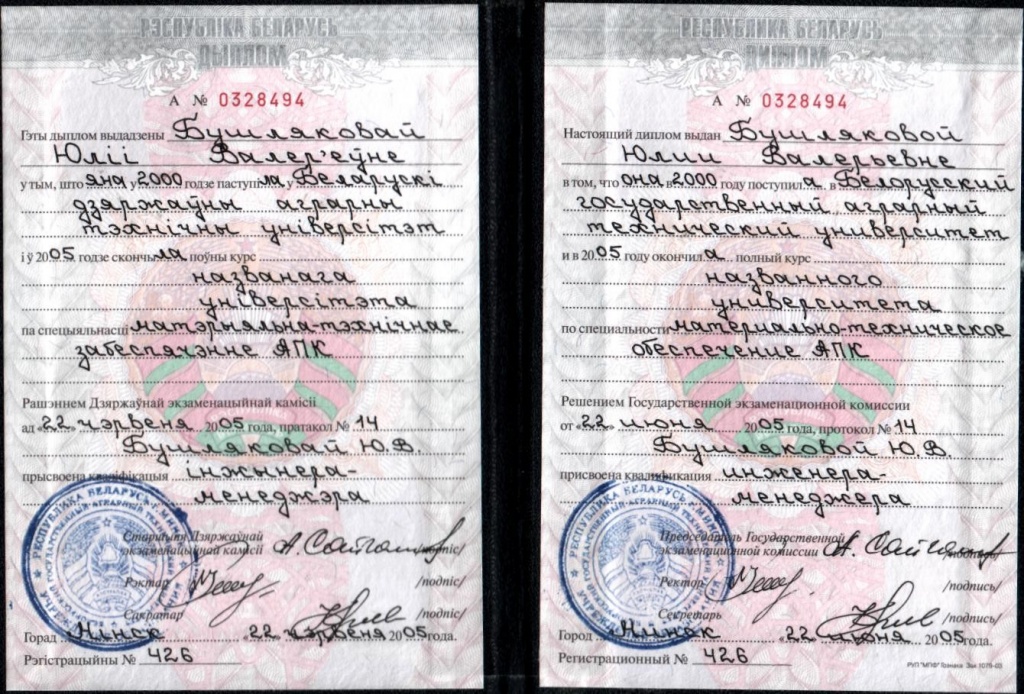 РЭСПУБЛІКА БЕЛАРУСЬ
ДЫПЛОМ
А № 0328494
Гэты дыплом выдадзены Бушляковай
Юліі Валер'еўне
у тым, што яна ў 2000 годзе паступіла ў Беларускі
дзяржаўны аграрны
тэхнічны універсітэт
і ў 2005 годзе скончыла поўны курс
названага
універсітэта
па спецыяльнасці матэрыяльна-тэхнічнае
забеспячэнне АПК
Рашэннем Дзяржаўнай экзаменацыйнай камісіі
ад «22» чэрвеня 2005 года, пратакол № 14
Бушляковай Ю.В.
прысвоена кваліфікацыя інжынера-
менеджэра
Старшыня Дзяржаўнай
экзаменацыйнай камісіі /подпіс/
Рэктар /подпіс/
Сакратар /подпіс/
Горад Мінск «22» чэрвеня 2005 года.
Рэгістрацыйны № 426
РЕСПУБЛИКА БЕЛАРУСЬ
ДИПЛОМ
А № 0328494
Настоящий диплом выдан Бушляковой
Юлии Валерьевне
в том, что она в 2000 году поступила в Белорусский
государственный аграрный
технический университет
и в 2005 году окончила полный курс
названного
университета
по специальности материально-техническое
обеспечение АПК
Решением Государственной экзаменационной комиссии
от «22» июня 2005 года, протокол № 14
Бушляковой Ю.В.
присвоена квалификация инженера-
менеджера
Председатель Государственной
экзаменационной комиссии /подпись/
Ректор /подпись/
Секретарь /подпись/
Город Минск «22» июня 2005 года.
Регистрационный № 426
РУП "МПФ" Гознака
РЕСПУБЛИКА БЕЛАРУСЬ